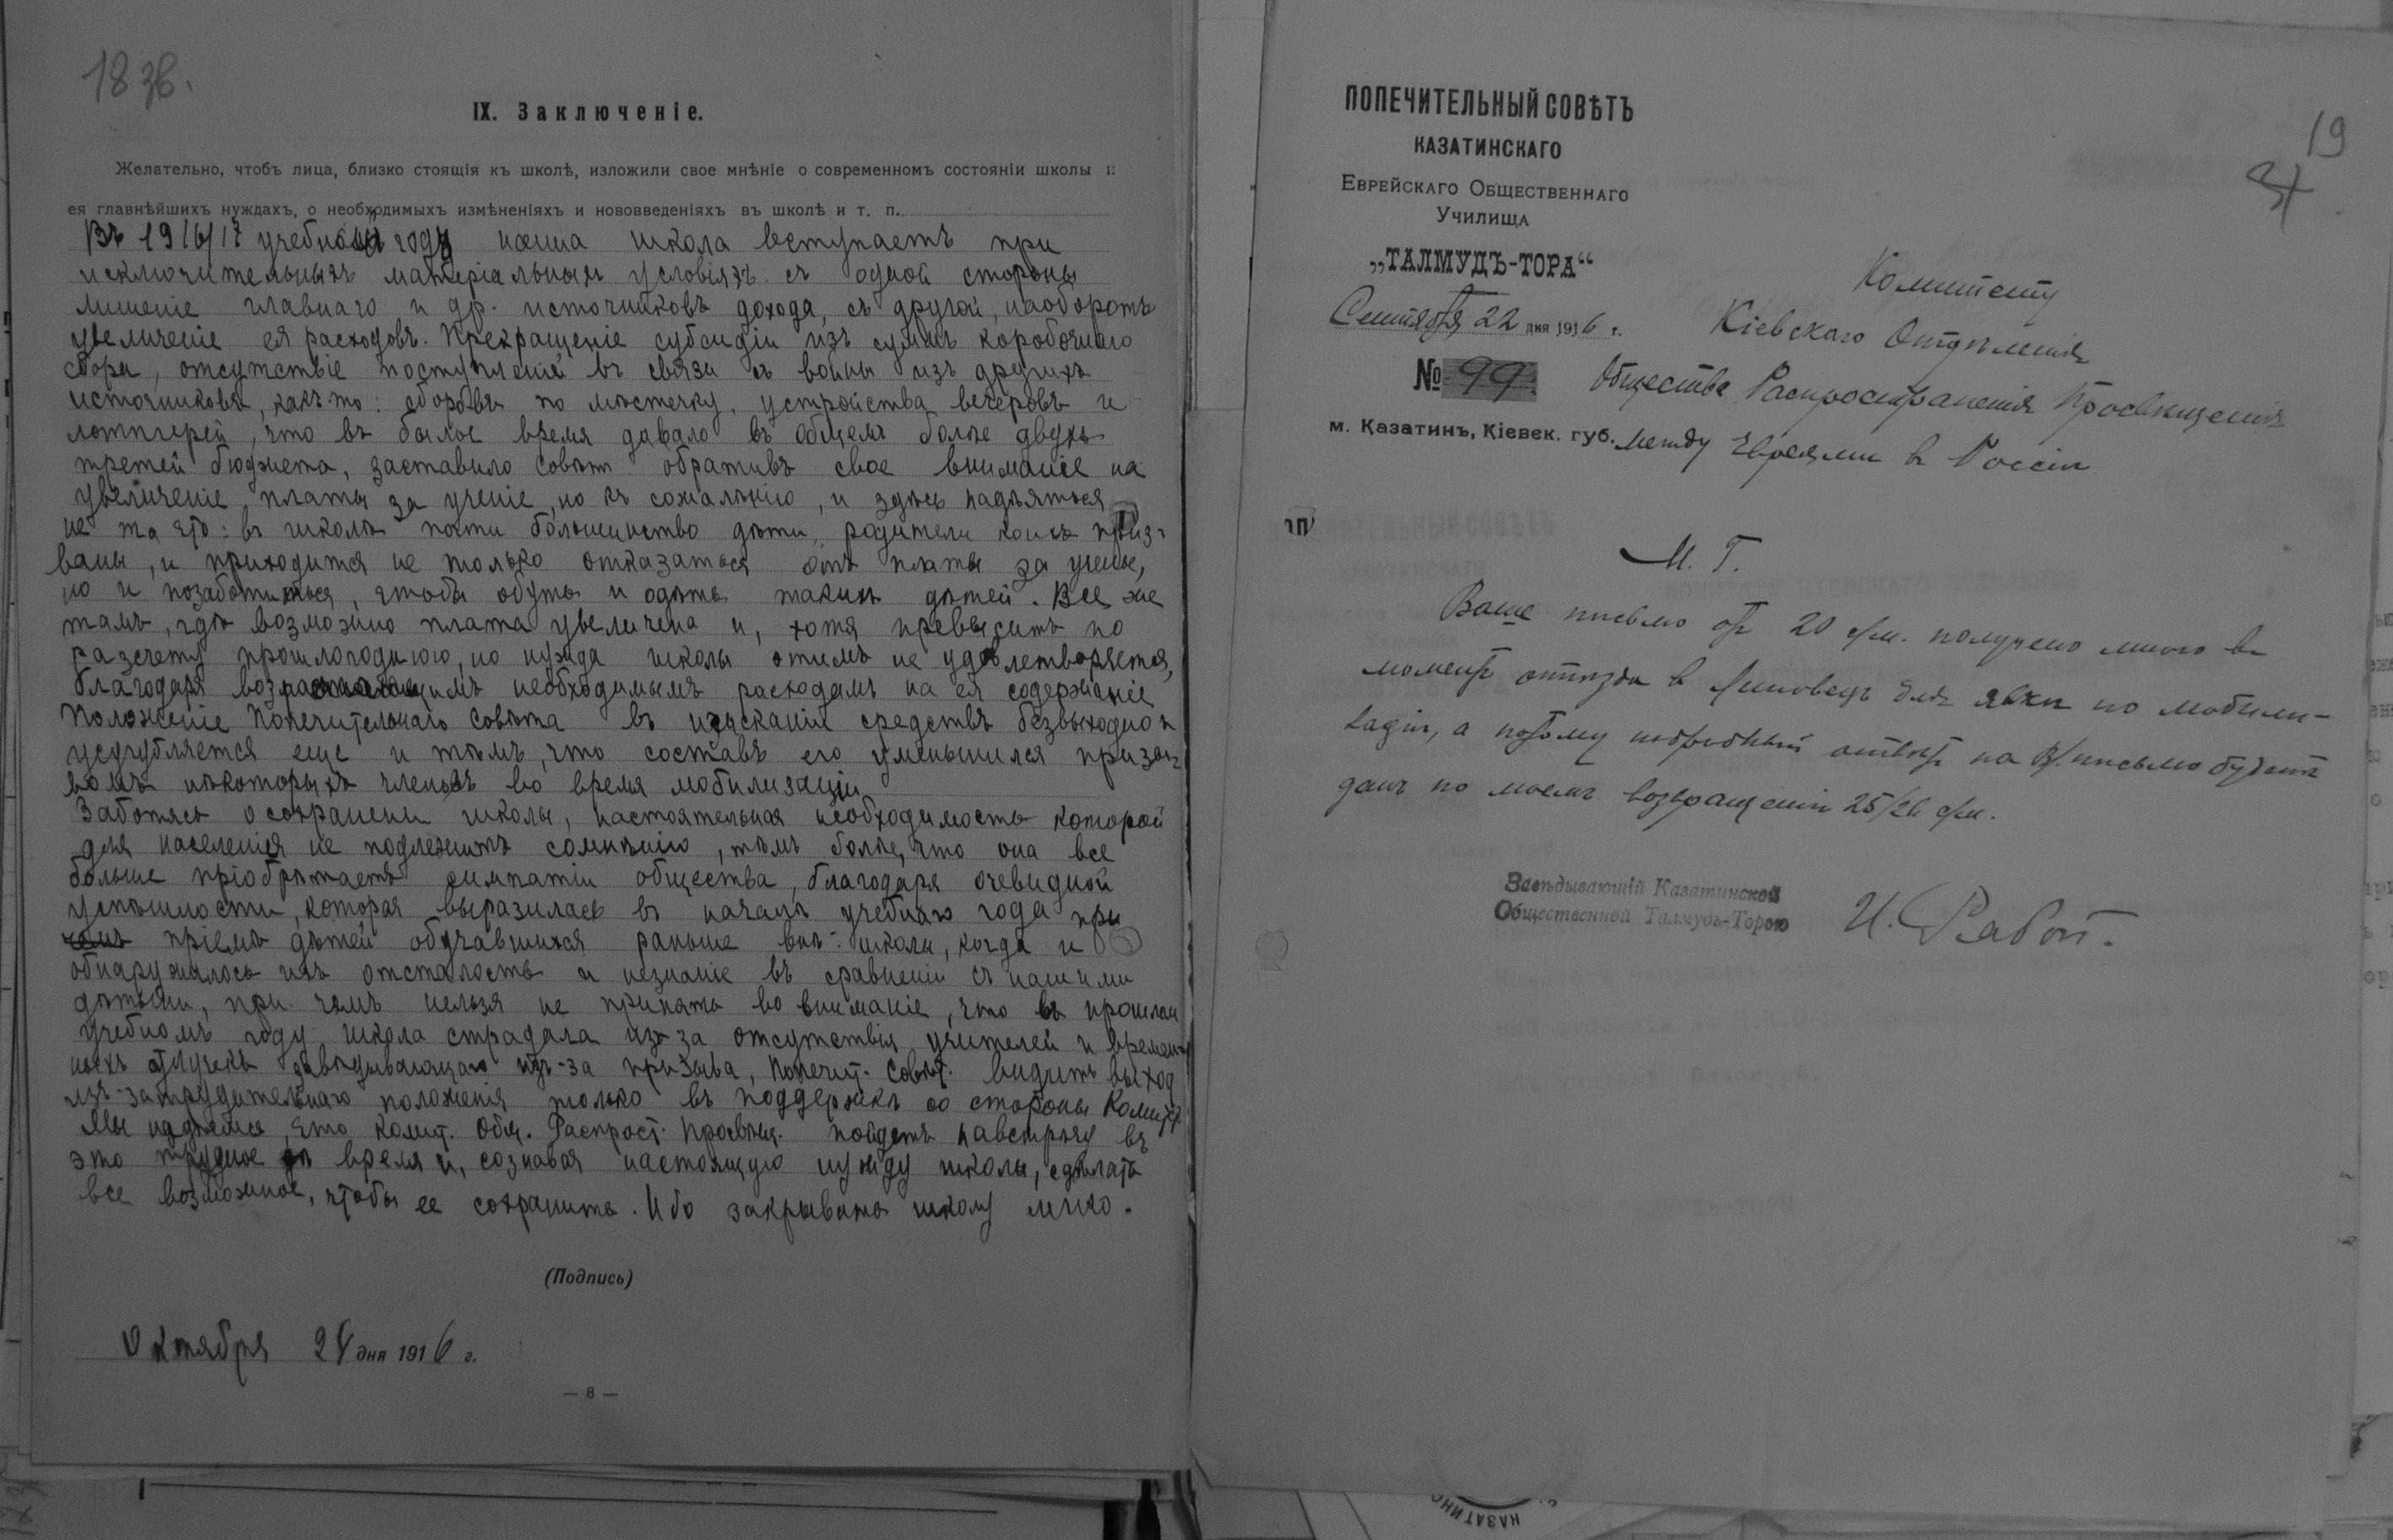 18 зв.
IX. Заключеніе.
Желательно, чтобъ лица, близко стоящія къ школѣ, изложили свое мнѣніе о современномъ состояніи школы и
ея главнѣйшихъ нуждахъ, о необходимыхъ измѣненіяхъ и нововведеніяхъ въ школѣ и т. п.
Въ 1916/17 учебномъ году наша школа вступаетъ при
исключительныхъ матеріальныхъ условіяхъ: съ одной стороны
лишеніе главнаго и др. источниковъ дохода, съ другой, наоборотъ
увеличеніе ея расходовъ. Прекращеніе субсидіи изъ суммъ коробочнаго
сбора, отсутствіе поступленій въ связи съ войны изъ другихъ
источниковъ, какъ то: сборовъ по мѣстечку, устройства вечеровъ и
лоттерей, что въ былое время давало въ общемъ болѣе двухъ
третей бюджета, заставило совѣтъ обратить свое вниманіе на
увеличеніе платы за ученіе, но къ сожалѣнію, и здѣсь надѣяться
не на что: въ школѣ почти большинство дѣти, родители коихъ приз-
ваны, и приходится не только отказаться отъ платы за ученіе,
но и позаботиться, чтобы обуть и одѣть такихъ дѣтей. Все же
тамъ, гдѣ возможно плата увеличена и, хотя превыситъ по
разсчету прошлогоднюю, но нужда школы этимъ не удовлетворяется,
благодаря возрастающимъ необходимымъ расходамъ на ея содержаніе
Положеніе Попечительнаго Совѣта въ изысканіи средствъ безвыходно и
усугубляется еще и тѣмъ, что составъ его уменьшился призы-
вомъ нѣкоторыхъ членовъ во время мобилизаціи
Заботясь о сохраненіи школы, настоятельная необходимость которой
для населенія не подлежитъ сомнѣнію, тѣмъ болѣе, что она все
больше пріобрѣтаетъ симпатіи общества, благодаря очевидной
успѣшности, которая выразилась въ началѣ учебнаго года при
пріемѣ дѣтей обучавшихся раньше внѣ школы, когда и
обнаружилось ихъ отсталость и незнаніе въ сравненіи съ нашими
дѣтьми, при чемъ нельзя не принять во вниманіе, что въ прошлом
учебномъ году школа страдала изъ-за отсутствія учителей и времен-
ныхъ отлучекъ завѣдывающаго изъ-за призыва, Попечит. Совѣт. видитъ выход
изъ затруднительнаго положенія только въ поддержкѣ со стороны Комит.
Мы надѣемся, что комит. Общ. Распрост. Просвѣщ. пойдетъ навстрѣчу въ
это трудное время и, сознавая настоящую нужду школы, сдѣлать
все возможное, чтобы ее сохранить. Ибо закрывать школу легко.
(Подпись)
Октября 24 дня 1916 г.
— 8 —
19
ПОПЕЧИТЕЛЬНЫЙ СОВѢТЪ
КАЗАТИНСКАГО
ЕВРЕЙСКАГО ОБЩЕСТВЕННАГО
УЧИЛИЩА
„ТАЛМУДЪ-ТОРА“
Сентября 22 дня 1916 г.
№ 99.
м. Казатинъ, Кіевск. губ.
Комитету
Кіевскаго Отдѣленія
Общества Распространенія Просвѣщенія
между Евреями в Россіи
М. Г.
Ваше письмо от 20 с/м. получено мною въ
моментъ отъѣзда в Липовецъ для явки по мобили-
заціи, а потому подробный отвѣтъ на В/. письмо будетъ
данъ по моемъ возвращеніи 25/26 с/м.
Завѣдывающій Казатинской
Общественной Талмудъ-Торою
И. Рабон.
КАЗАТИНС